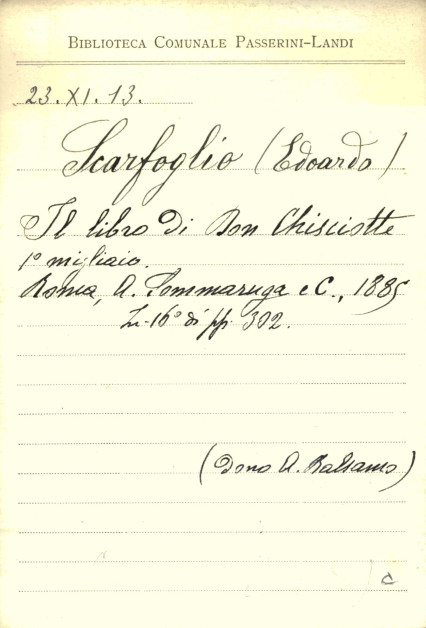 BIBLIOTECA COMUNALE PASSERINI-LANDI
23. XI. 13.
Scarfoglio (Edoardo)
Il libro di Don Chisciotte
1º migliaio.
Roma, A. Sommaruga e C., 1885
In-16º di pp. 302.
(Dono A. Balsamo)
C